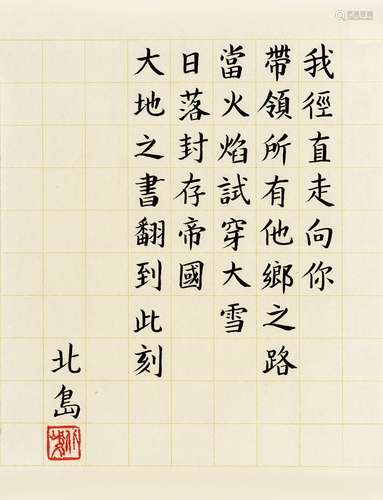 我徑直走向你
帶領所有他鄉之路
當火焰試穿大雪
日落封存帝國
大地之書翻到此刻
北島